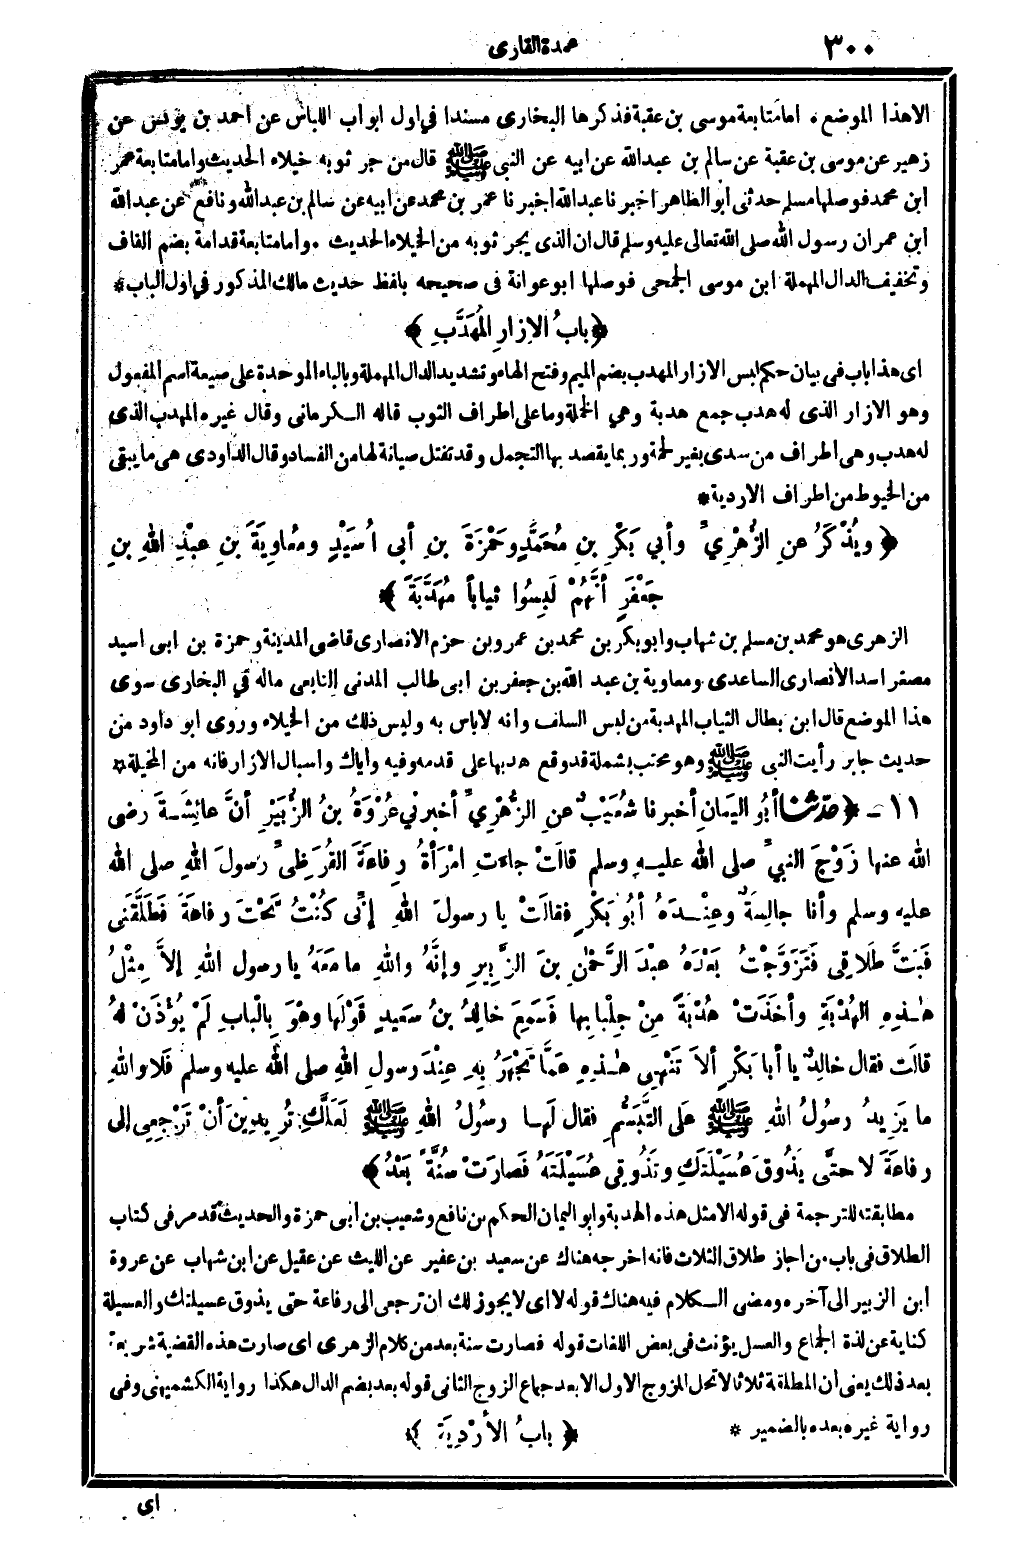 ٣٠٠
عمدة القارى
الا هذا الموضع ، اما متابعة موسى بن عقبة فذكرها البخارى مسندا في اول ابواب اللباس عن احمد بن يونس عن
زهير عن موسى بن عقبة عن سالم بن عبد الله عن ابيه عن النبى ﷺ قال من جر ثوبه خيلاء الحديث واما متابعة عمر
ابن محمد فوصلها مسلم حدثنى ابو الطاهر اخبرنا عبد الله اخبرنا عمر بن محمد عن ابيه عن سالم بن عبد الله ونافع عن عبد الله
ابن عمر ان رسول الله صلى الله تعالى عليه وسلم قال ان الذى يجر ثوبه من الخيلاء الحديث . واما متابعة قدامة بضم القاف
وتخفيف الدال المهملة ابن موسى الجمحى فوصلها ابو عوانة فى صحيحه بلفظ حديث مالك المذكور في اول الباب *
﴿ بابُ الإزارِ المُهَدَّبِ ﴾
اى هذا باب فى بيان حكم لبس الازار المهدب بضم الميم وفتح الهاء وتشديد الدال المهملة وبالباء الموحدة على صيغة اسم المفعول
وهو الازار الذى له هدب جمع هدبة وهي الخملة وما على اطراف الثوب قاله الكرمانى وقال غيره المهدب الذى
له هدب وهى اطراف من سدى بغير لحمة وربما يقصد بها التجمل وقد تفتل صيانة لها من الفساد وقال الداودى هى ما يبقى
من الخيوط من اطراف الاردية *
﴿ ويُذْكَرُ عنِ الزُّهْرِيِّ وأبي بَكْرِ بنِ مُحَمَّدٍ وحَمْزَةَ بنِ أبى أُسَيْدٍ ومُعاوِيَةَ بنِ عبْدِ اللهِ بنِ
جَعْفَرٍ أنَّهُمْ لَبِسُوا ثياباً مُهَدَّبَةً ﴾
الزهرى هو محمد بن مسلم بن شهاب وابو بكر بن محمد بن عمرو بن حزم الانصارى قاضى المدينة وحمزة بن ابى اسيد
مصغر اسد الأنصارى الساعدى ومعاوية بن عبد الله بن جعفر بن ابى طالب المدنى التابعى ماله في البخارى سوى
هذا الموضع قال ابن بطال الثياب المهدبة من لبس السلف وانه لا باس به وليس ذلك من الخيلاء وروى ابو داود من
حديث جابر رأيت النبى ﷺ وهو محتب بشملة قد وقع هدبها على قدمه وفيه واياك واسبال الازار فانه من المخيلة *
١١ - ﴿ حدثنا أبُو اليَمانِ أخبرنا شُعَيْبٌ عنِ الزُّهْرِيِّ أخبرني عُرْوَةُ بنُ الزُّبَيْرِ أنَّ عائِشَةَ رضى
الله عنها زَوْجَ النبيِّ صلى الله عليهِ وسلم قالَتْ جاءَتِ امْرَأةُ رِفاعَةَ القُرَظِىِّ رَسُولَ اللهِ صلى الله
عليه وسلم وأنا جالِسَةٌ وعِنْدَهُ أبُو بَكْرٍ فقالَتْ يا رسولَ اللهِ إنِّى كُنْتُ تَحْتَ رِفاعَةَ فَطَلَّقَنى
فَبَتَّ طَلَاقِى فَتَزَوَّجْتُ بَعْدَهُ عبْدَ الرَّحْمٰنِ بنَ الزَّبِيرِ وإنَّهُ واللهِ ما مَعَهُ يا رسول اللهِ إلاَّ مِثْلُ
هٰذِهِ الهُدْبَةِ وأخَذَتْ هُدْبَةً مِنْ جِلْبابِها فَسَمِعَ خالِدُ بنُ سَعِيدٍ قَوْلَها وهْوَ بِالْبابِ لَمْ يُؤْذَنْ لهُ
قالَت فقال خالِدٌ يا أبا بَكْرٍ ألاَ تَنْهى هٰذِهِ عَمَّا تَجْهَرُ بِهِ عِنْدَ رسولِ اللهِ صلى الله عليه وسلم فَلا واللهِ
ما يَزِيدُ رسولُ اللهِ ﷺ على التَّبَسُّمِ فقال لَها رسُولُ اللهِ ﷺ لَعَلَّكِ تُرِيدِينَ أنْ تَرْجِعِى إلى
رِفاعَةَ لا حتَّى يَذُوقَ عُسَيْلَتَكِ وتَذُوقِى عُسَيْلَتَهُ فَصارَتْ سُنَّةً بَعْدُ ﴾
مطابقته للترجمة فى قوله الا مثل هذه الهدبة وابو اليمان الحكم بن نافع وشعيب بن ابى حمزة والحديث قد مر فى كتاب
الطلاق فى باب من اجاز طلاق الثلاث فانه اخرجه هناك عن سعيد بن عفير عن الليث عن عقيل عن ابن شهاب عن عروة
ابن الزبير الى آخره ومضى الكلام فيه هناك قوله لا اى لا يجوز لك ان ترجعى الى رفاعة حتى يذوق عسيلتك والعسيلة
كناية عن لذة الجماع والعسل يؤنث فى بعض اللغات قوله فصارت سنة بعد من كلام الزهرى اى صارت هذه القضية شريعة
بعد ذلك يعنى أن المطلقة ثلاثا لا تحل للزوج الاول الا بعد جماع الزوج الثانى قوله بعد بضم الدال هكذا رواية الكشميهنى وفى
رواية غيره بعده بالضمير *
﴿ بابُ الأرْدِيَةِ ﴾
اى